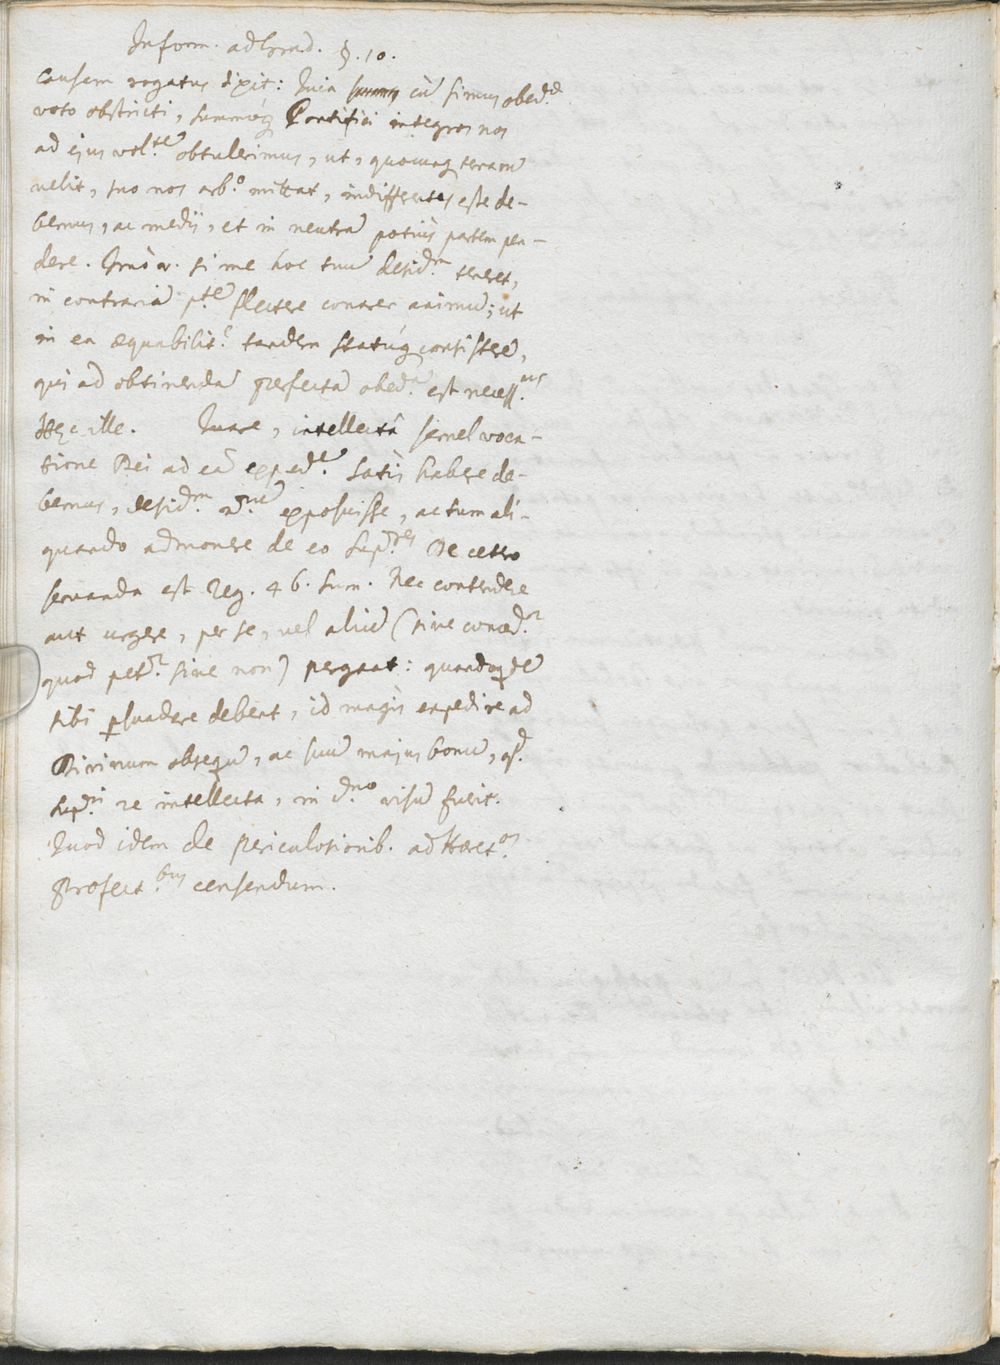 Inform. ad Grad. §. 10.
causam rogatus dixit: Quia sumus cū simus obed.æ
voto obstricti, summóq; Pontifici integros nos
ad ejus vol.tē obtulerimus, ut, quocunq; terrarū
velit, suo nos arb.o mittat, indifferētes esse de-
bemus, ac medij, et in neutrā potiùs partem pen-
dere. Imò v. si me hoc tuū desid.m teneret,
in contrariā p.tē flectere conarer animū; ut
in ea æquabilit.e tandem statúq; consisterē,
qui ad obtinendā perfectā obed.ā est necess.ius
Hęc ille. Quare, intellectâ semel voca-
tione Dei ad eā exped.ē satis habere de-
bemus, desid.m exposuisse, ac tum ali-
quando admonere de eo Sup.res De cetero
servanda est Reg. 46. Sum. Nec contendere
aut urgere, per se, vel aliū (sive conced.r
quod pet.r sive non) pergant: quandoq;dē
sibi p̱suadere debent, id magis expedire ad
Divinum obseqū, ac suū majus bonū, qd.
Sup.ri re intellecta, in D.no visū fuerit.
Quod idem de periculosiorib. ad Hæret.os
profect.bus censendum.